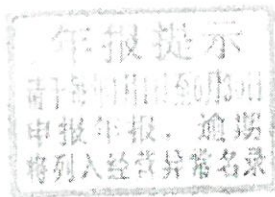 年报提示
请于每年1月1日至6月30日
申报年报，逾期
将列入经营异常名录